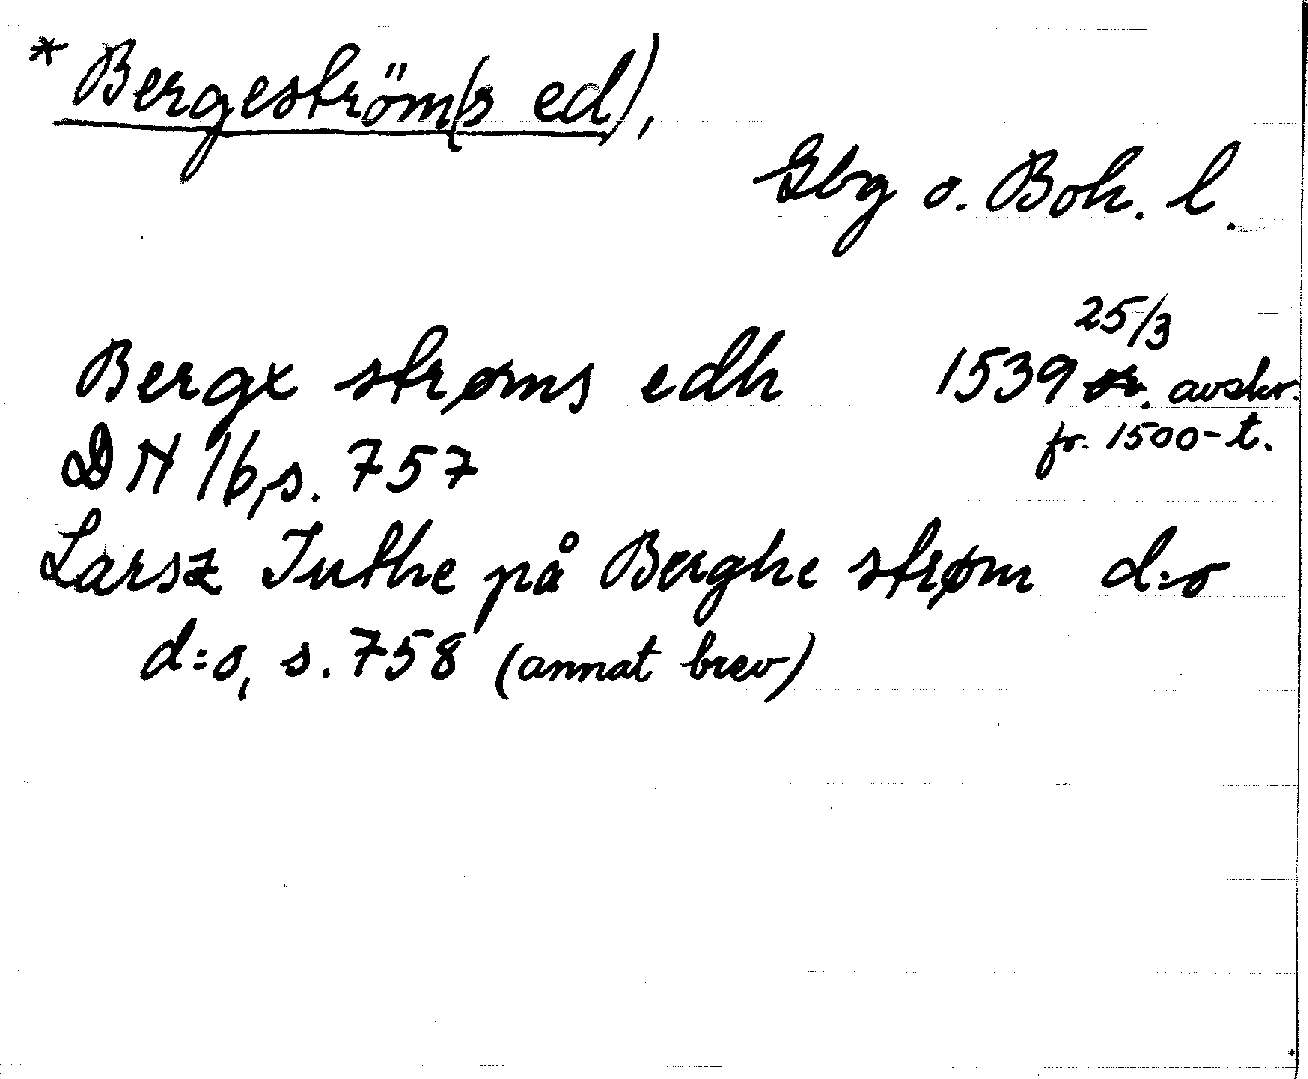 * Bergeström(s ed),
Gbg o. Boh. l.
Bergx strøms edh 1539 25/3 avskr.
fr. 1500-t.
DN 16, s. 757
Larsz Juthe på Berghe strøm d:o
d:o, s. 758 (annat brev)